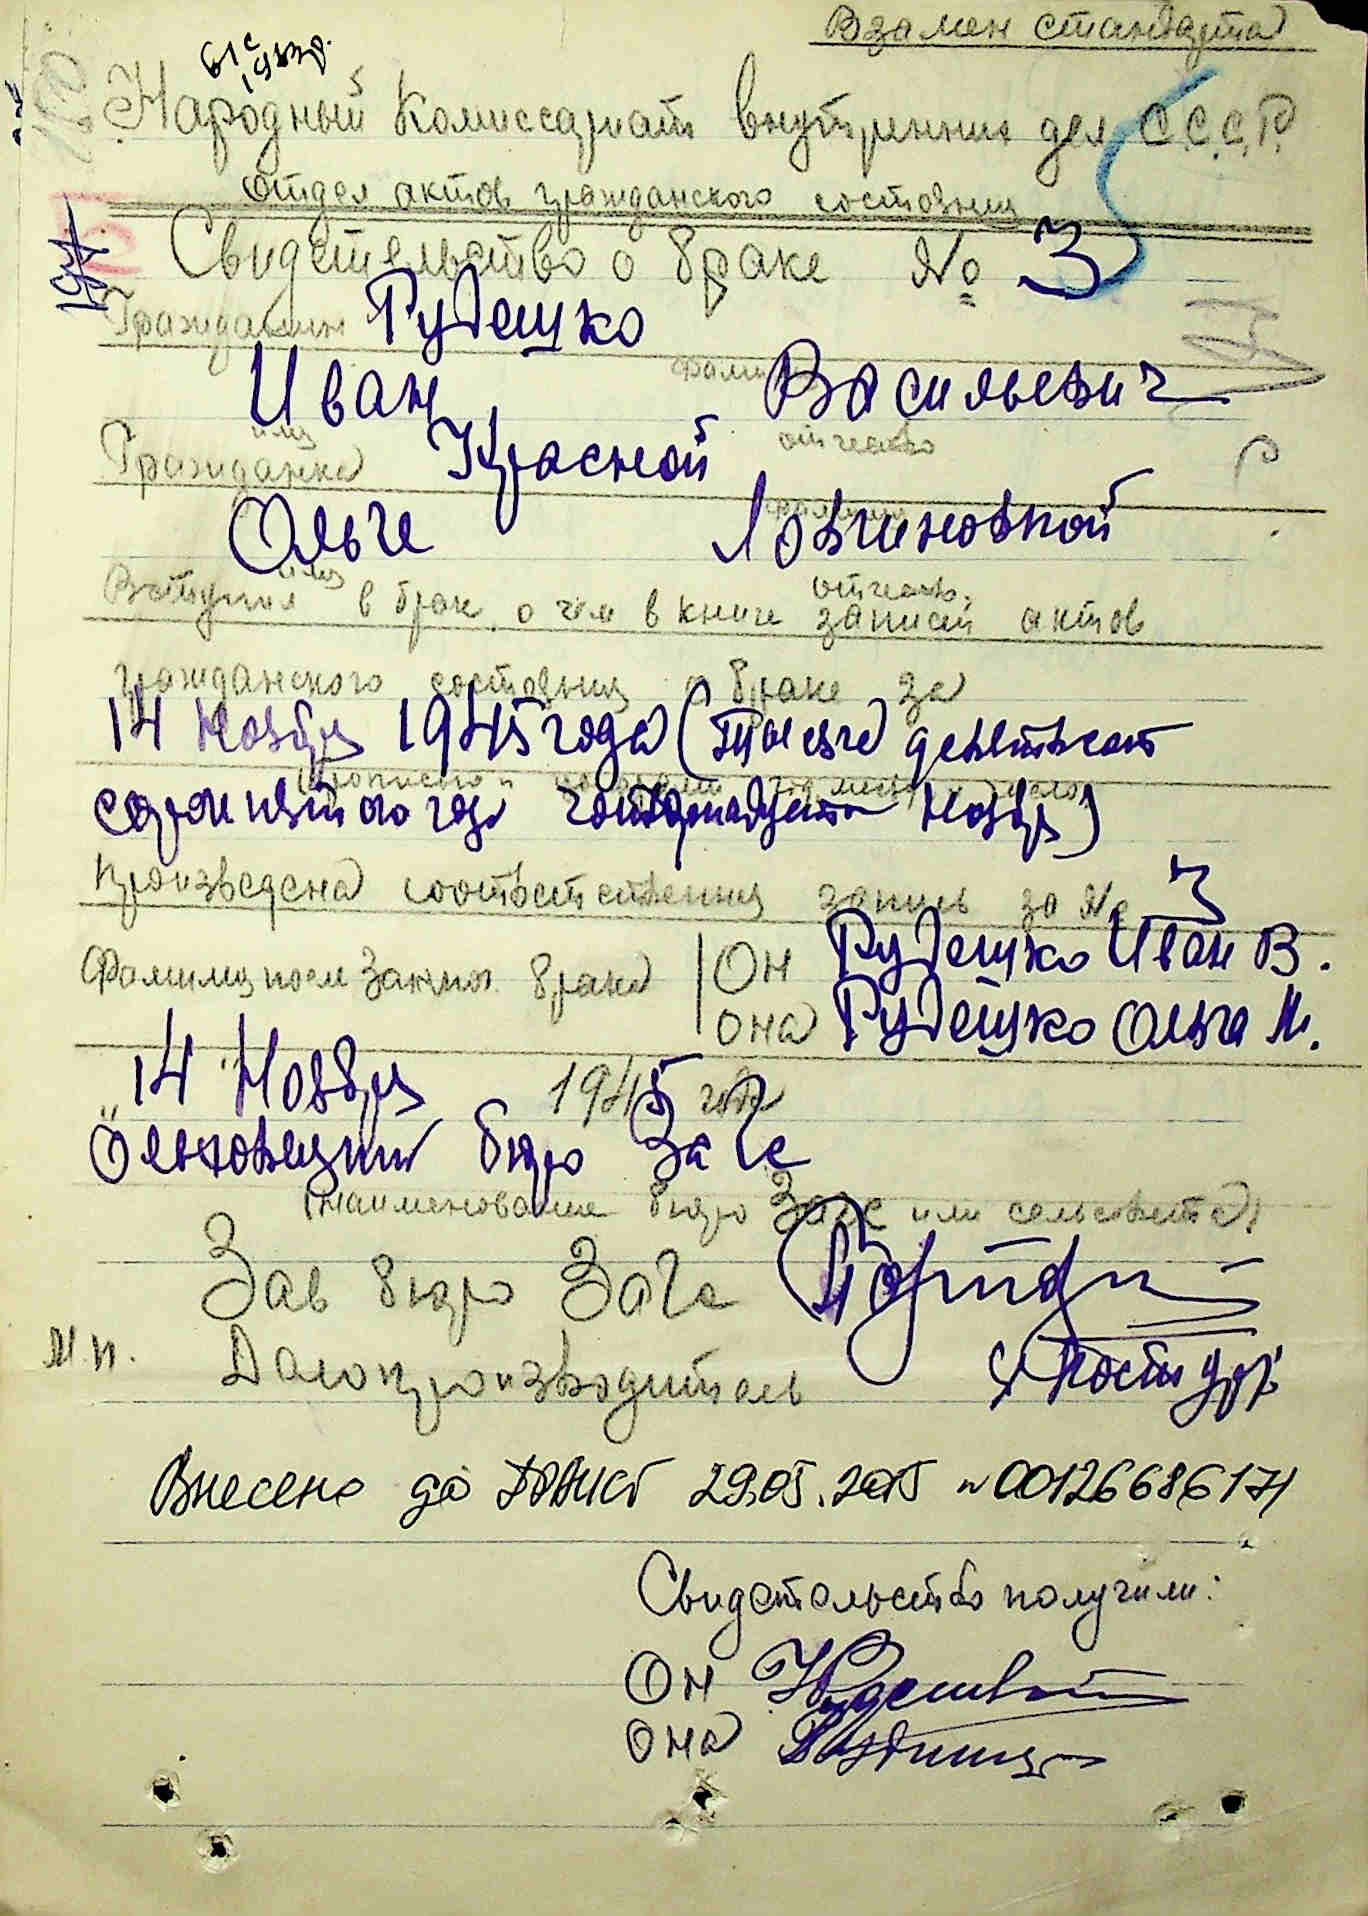 Взамен стандарта
Народный Комиссариат внутренних дел С.С.С.Р.
отдел актов гражданского состояния
Свидетельство о браке № 3
Гражданин Рудешко
Иван Васильевич
имя отчество
Гражданка Красной
Ольге
имя отчество
Вступил в брак, о чем в книге записей актов
гражданского состояния о браке за
14 Ноября 1945 года (Тысяча девятьсот
сорок пятого года четырнадцатого Ноября)
произведена соответственная запись за № 3
Фамилия после заключ. брака Он Рудешко Иван В.
она Рудешко Ольга М.
14 Ноября 1945 года
бюро Загс
(наименование бюро Загс или сельсовета)
Зав бюро Загс
М.П. Делопроизводитель
Внесено до 29.05.2015 № 00126686171
Свидетельство получили:
Он
она